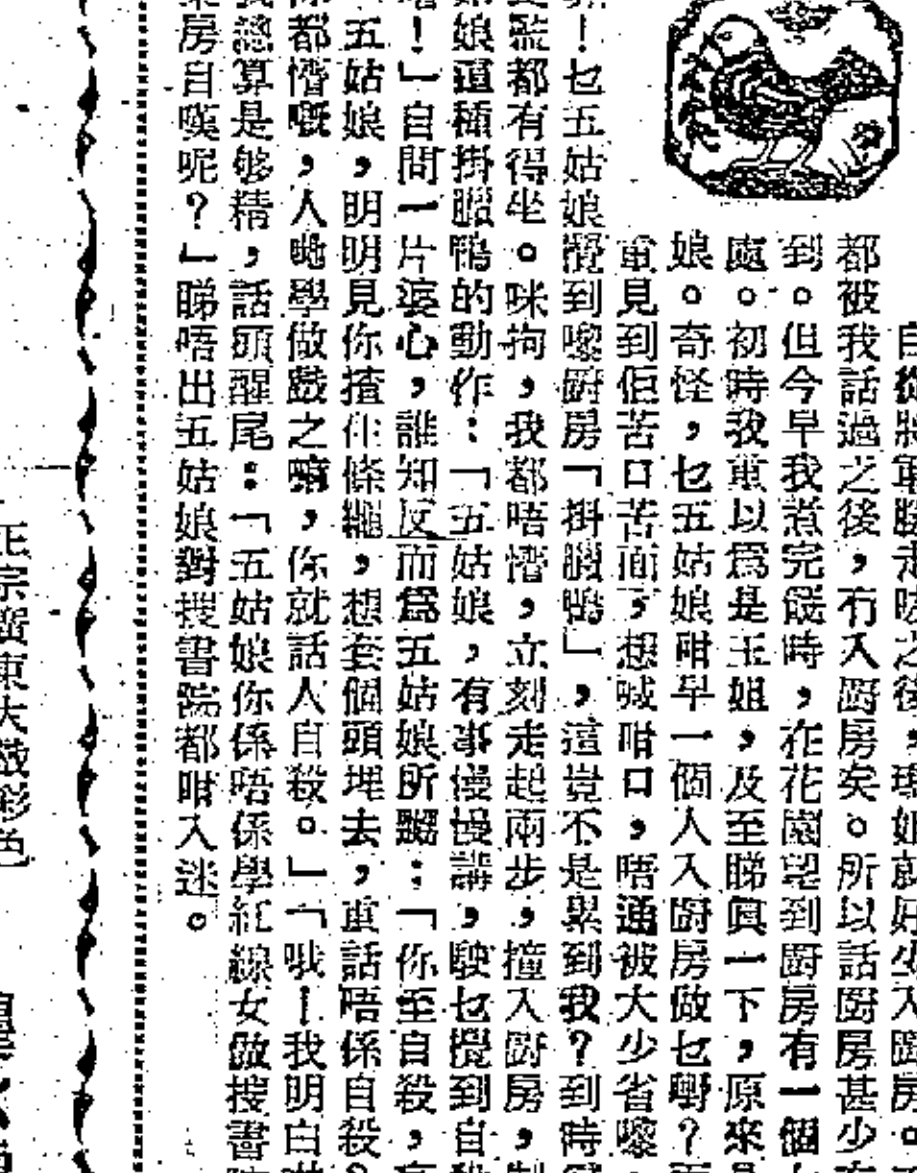 自從將軍勝走咗之後，瓊姐就好少入廚房。
都被我話過之後，冇入廚房矣。所以話廚房甚少
到。但今早我煮完餸時，在花園望到廚房有一個
處。初時我重以爲是玉姐，及至睇眞一下，原來
娘。奇怪，乜五姑娘咁早一個人入廚房做乜嘢？
重見到佢苦口苦面，想喊咁口，唔通被大少省嚟
！乜五姑娘攪到嚟廚房「掛臘鴨」，這豈不是累到我？到時
監都有得坐。咪拘，我都唔憯，立刻走起兩步，撞入廚房，制
娘這種掛臘鴨的動作：「五姑娘，有事慢慢講，駛乜攪到自殺
！」自問一片婆心，誰知反而爲五姑娘所嬲：「你至自殺，
五姑娘，明明見你揸住條繩，想套個頭埋去，重話唔係自殺？
你都憯嘅，人哋學做戲之嘛，你就話人自殺。」「哦！我明白
我總算是够精，話頭醒尾：「五姑娘你係唔係學紅線女做搜書
房自嘆呢？」睇唔出五姑娘對搜書院都咁入迷。
正宗廣東大戲彩色